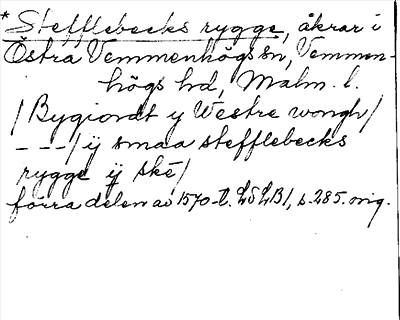 *Stefflebecks rygge, åkrar i
Östra Vemmenhögs sn, Vemmen-
högs hd, Malm. l.
/ Bygiordt y Westre wongh /
- - - / ÿ smaa stefflebecks
rygge ÿ ske /
förra delen av 1570-t. LSLB1, s. 285. orig.